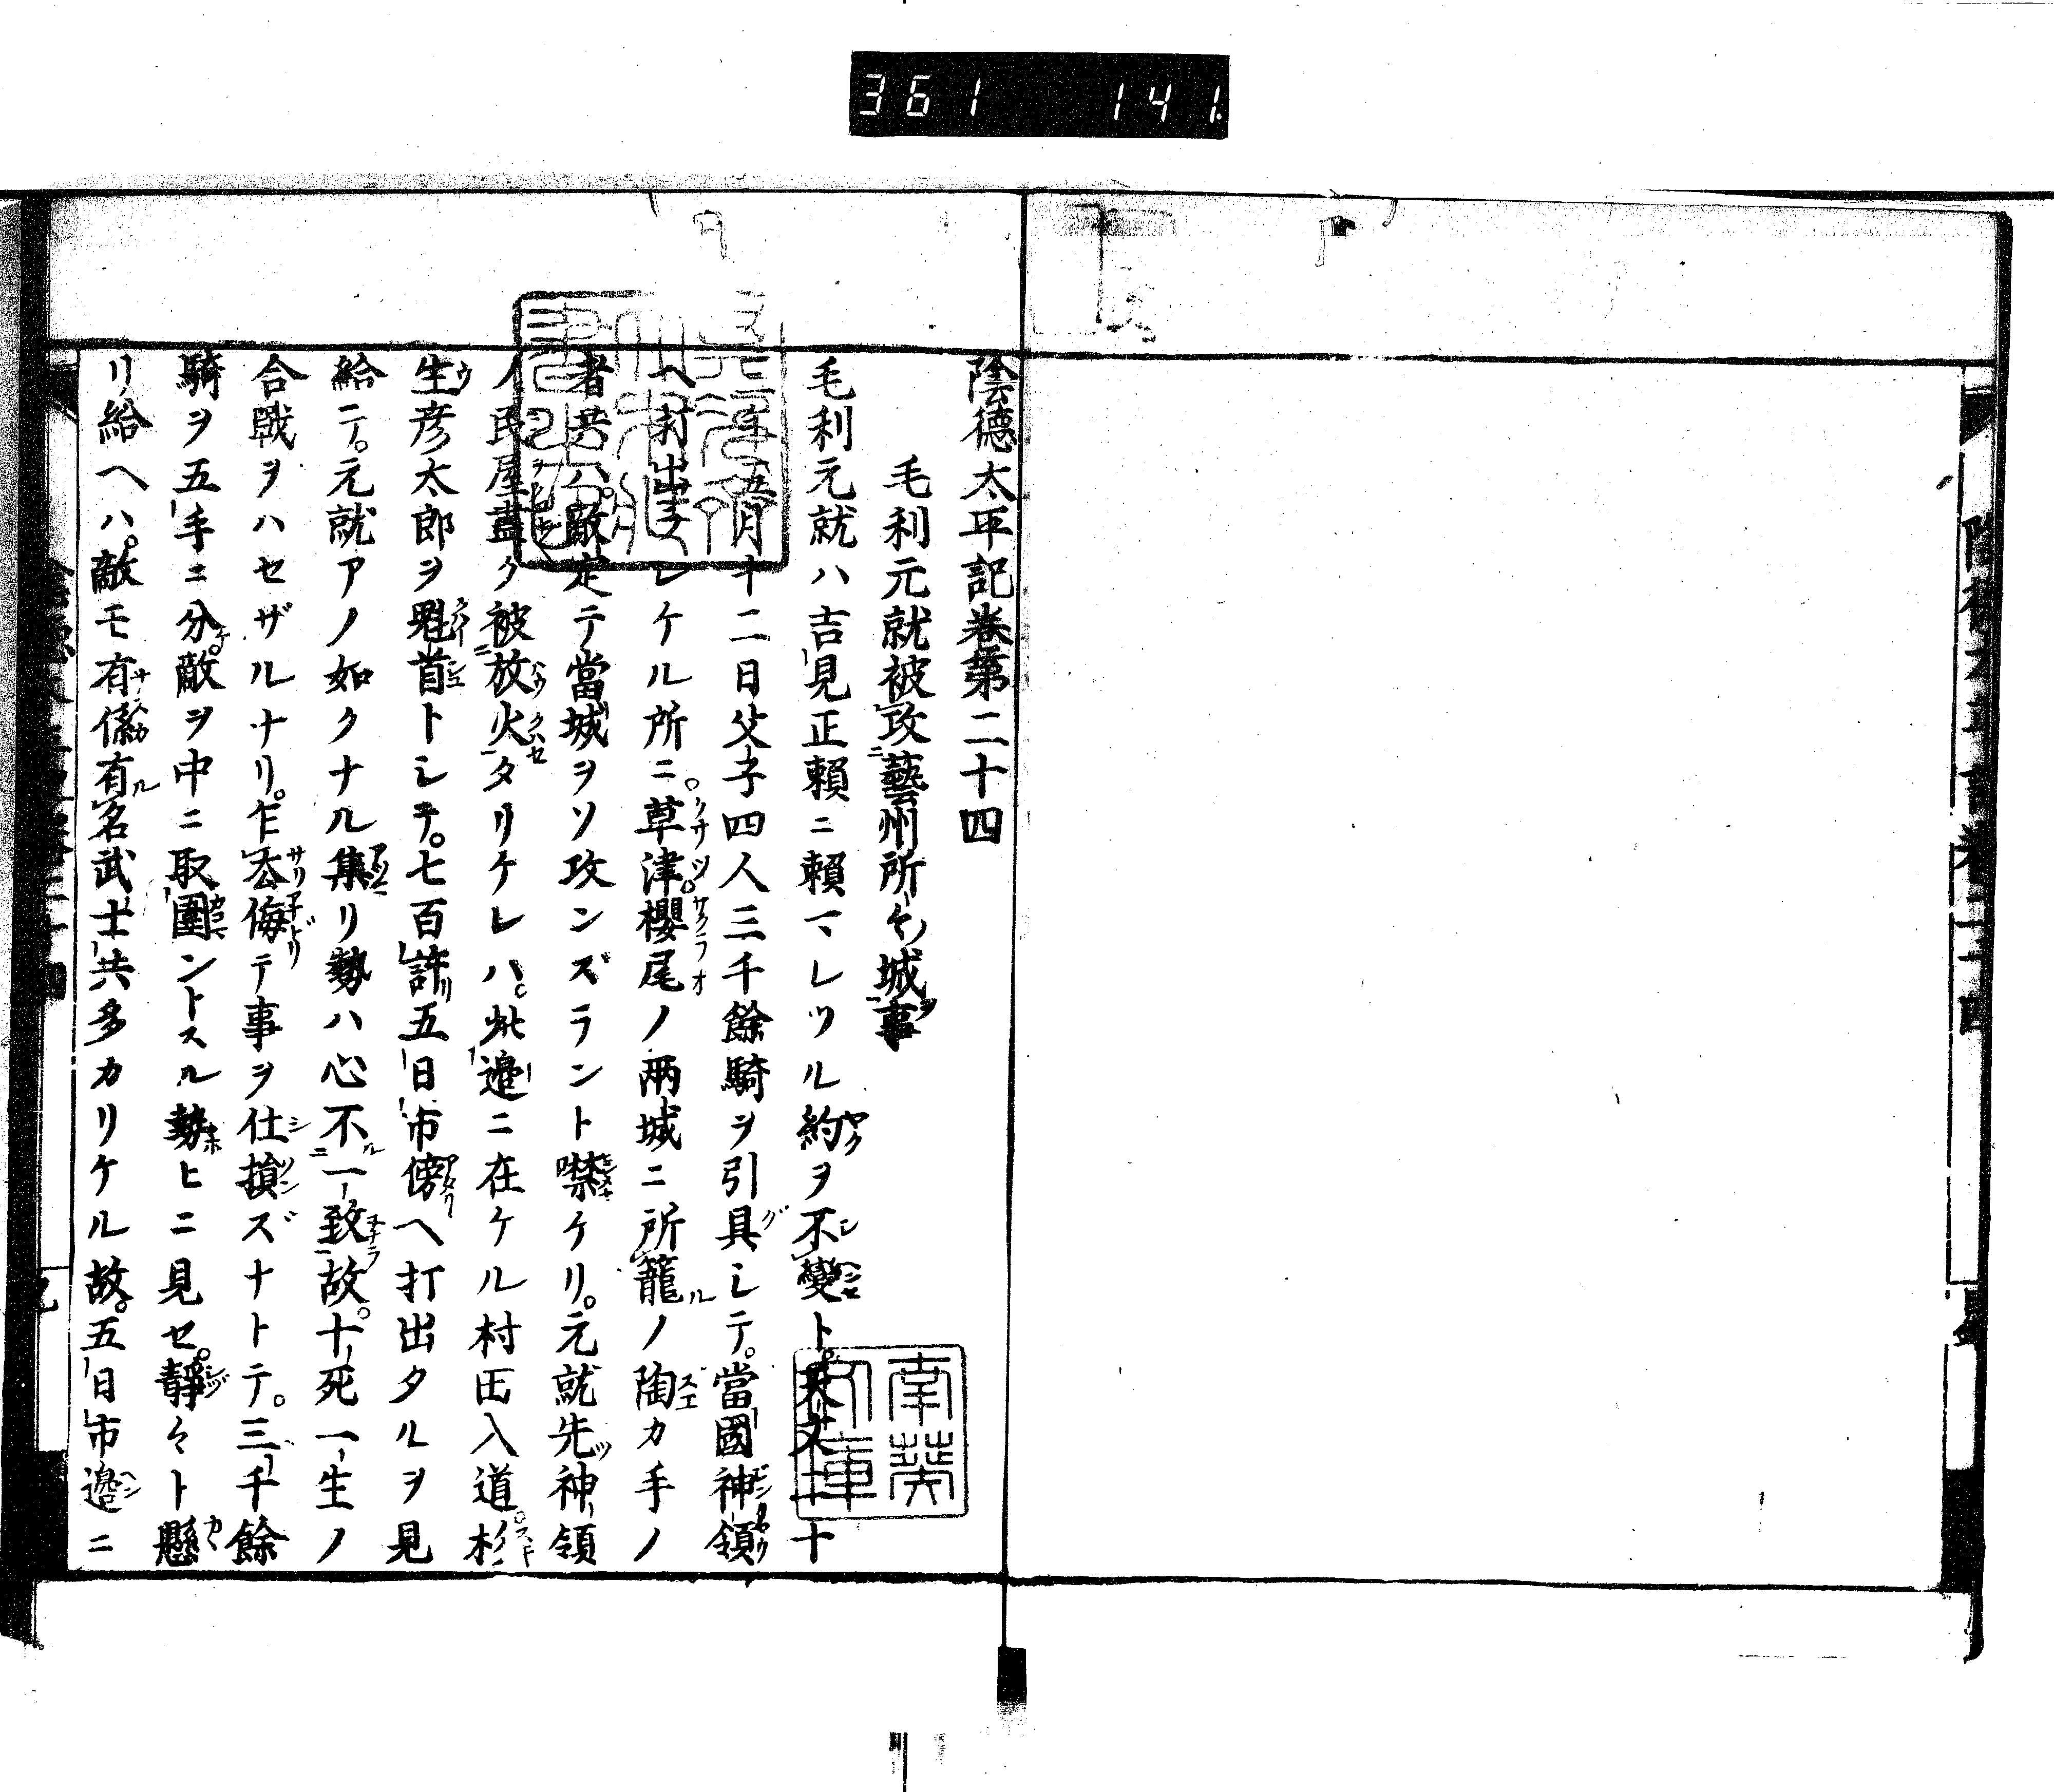 361 141
陰德太平記卷第二十四
毛利元就被攻藝州所々城事
毛利元就ハ吉見正賴ニ賴マレツル約ヲ不變ト。天文二十
三年五月十二日父子四人三千餘騎ヲ引具シテ。當國神領
ヘ打出ラレケル所ニ。草津。櫻尾ノ兩城ニ所籠ノ陶カ手ノ
者共ハ。敵定テ當城ヲソ攻ンズラント噤ケリ。元就先神領
ノ民屋盡ク被放火タリケレハ。此邊ニ在ケル村田入道。杉
生彦太郎ヲ魁首トシテ。七百許五日市傍ヘ打出タルヲ見
給ニテ。元就アノ如クナル集リ勢ハ心不一致故。十死一生ノ
合戰ヲハセザルナリ。乍去侮テ事ヲ仕損ズナトテ。三千餘
騎ヲ五手ニ分。敵ヲ中ニ取圍ントスル勢ヒニ見セ。靜々ト懸
リ給ヘハ。敵モ有係有名武士共多カリケル故。五日市邊ニ